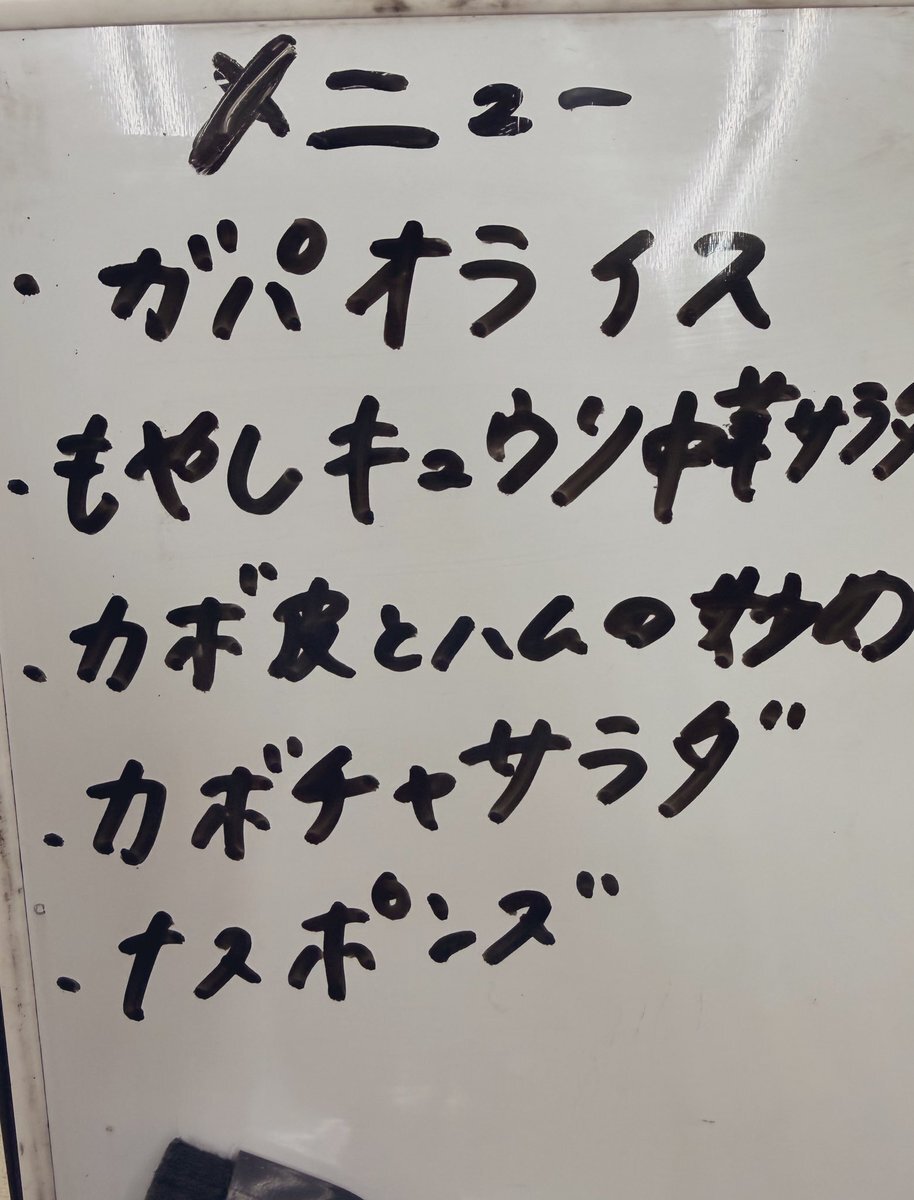 メニュー
・ガパオライス
・もやしキュウリ中華サラダ
・カボ皮とハムの炒め
・カボチャサラダ
・ナスポンズ